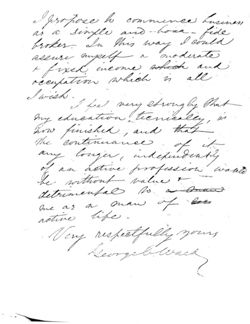 I propose to commence business
as a simple and bona-fide
broker. In this way I could
assure myself a moderate
& fixed income and
occupation which is all
I wish.
I feel very strongly that
my education, technically, is
now finished, and that
the continuance of it
any longer, independently
of an active profession, would
be without value &
detrimental to
me as a man of
active life.
Very respectfully yours
George